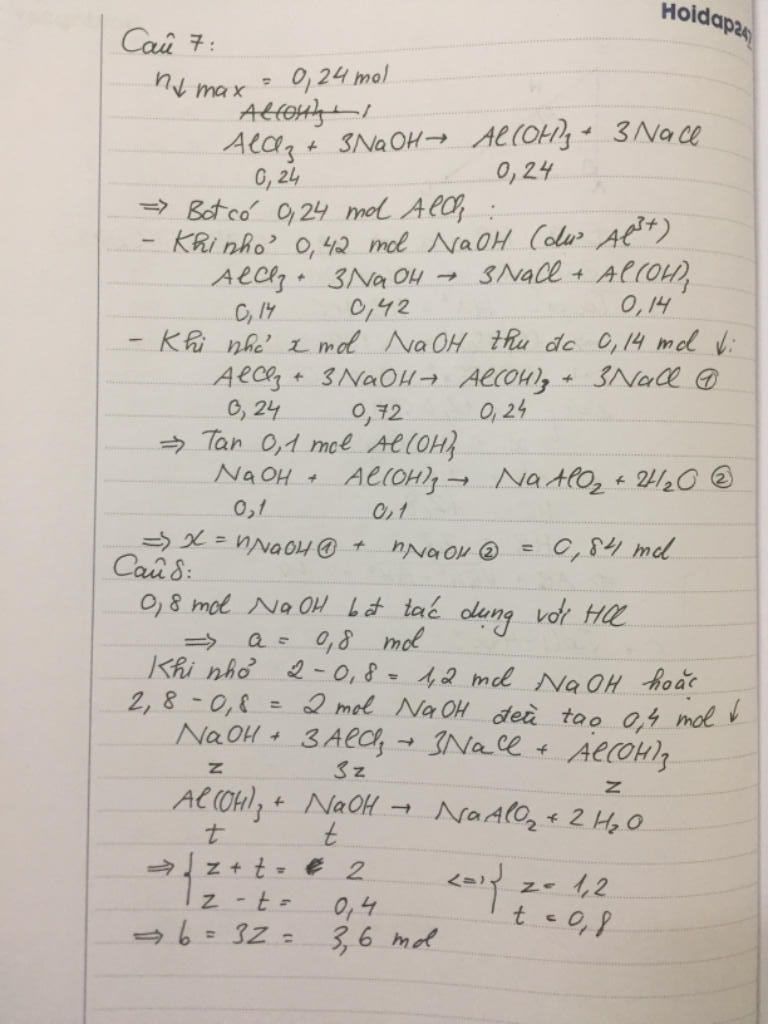 Hoidap247
Câu 7:
n↓ max = 0,24 mol
Al(OH)3 +
AlCl3 + 3NaOH → Al(OH)3 + 3NaCl
0,24 0,24
⇒ Bđ có 0,24 mol AlCl3 :
- Khi nhỏ 0,42 mol NaOH (dư Al³⁺)
AlCl3 + 3NaOH → 3NaCl + Al(OH)3
0,14 0,42 0,14
- Khi nhỏ x mol NaOH thu đc 0,14 mol ↓:
AlCl3 + 3NaOH → Al(OH)3 + 3NaCl ①
0,24 0,72 0,24
⇒ Tan 0,1 mol Al(OH)3
NaOH + Al(OH)3 → NaAlO2 + 2H2O ②
0,1 0,1
⇒ x = nNaOH① + nNaOH② = 0,84 mol
Câu 8:
0,8 mol NaOH bđ tác dụng với HCl
⇒ a = 0,8 mol
Khi nhỏ 2 - 0,8 = 1,2 mol NaOH hoặc
2,8 - 0,8 = 2 mol NaOH đều tạo 0,4 mol ↓
NaOH + 3AlCl3 → 3NaCl + Al(OH)3
z 3z z
Al(OH)3 + NaOH → NaAlO2 + 2H2O
t t
⇒ { z + t = 2 <=> { z = 1,2
z - t = 0,4 t = 0,8
⇒ b = 3z = 3,6 mol